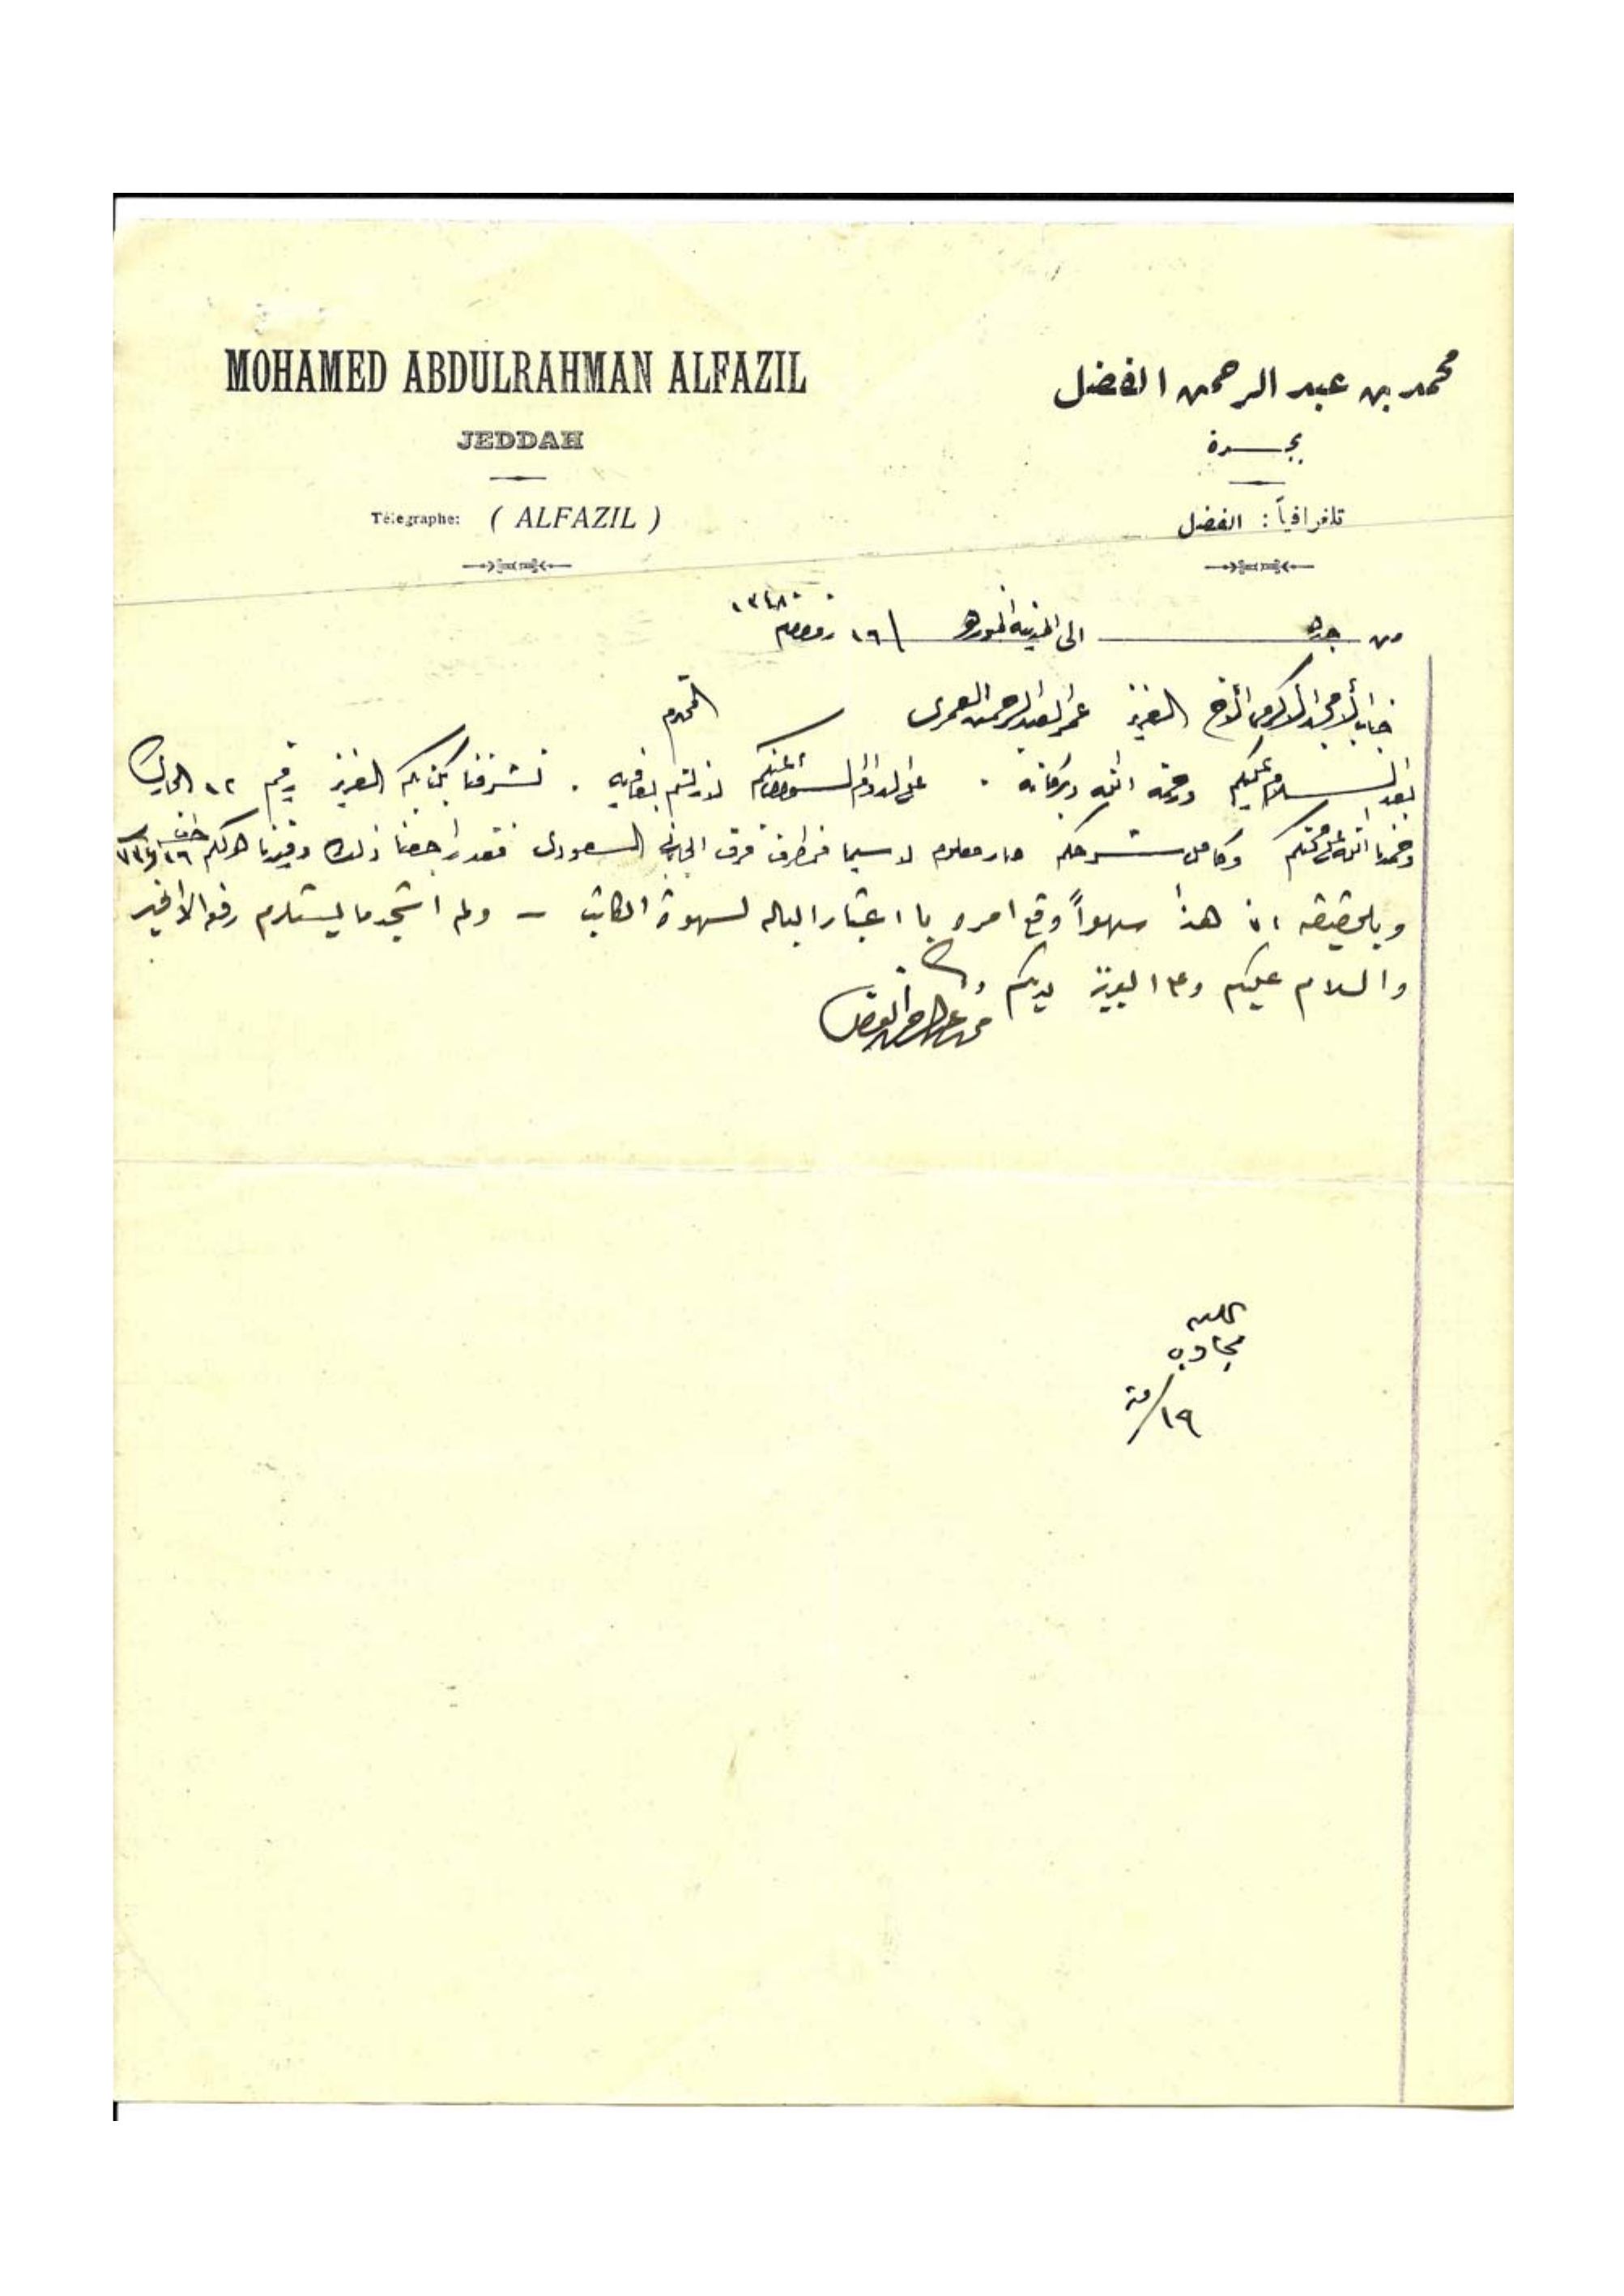 MOHAMED ABDULRAHMAN ALFAZIL
محمد بن عبد الرحمن الفضل
JEDDAH
بجدة
Télegraphe: ( ALFAZIL )
تلغرافياً : الفضل
من جده الى المدينه المنوره ١٦ رمضان ١٣٤٨
جناب الأمجد الأكرم الأخ العزيز عمر العبد الرحمن العمرى المحترم
بعد السلام عليكم ورحمة الله وبركاته . على الدوام لازلتم بعافيه . تشرفنا بكتابكم العزيز رقم ١٢ الجارى
وحمدنا الله على صحتكم وكامل شرحكم صار معلوم لا سيما من طرف فرق الجنيه السعودى فقد راجعنا ذلك وقيدنا لكم
وبالحقيقه ان هذا سهواً وقع امره با اعتبار الباله لسهوة الكاتب – ولم استجد ما يستلزم رفعه الا الخير
والسلام عليكم العزيز لديكم
محمد عبد الرحمن الفضل
مجاوب
١٩/